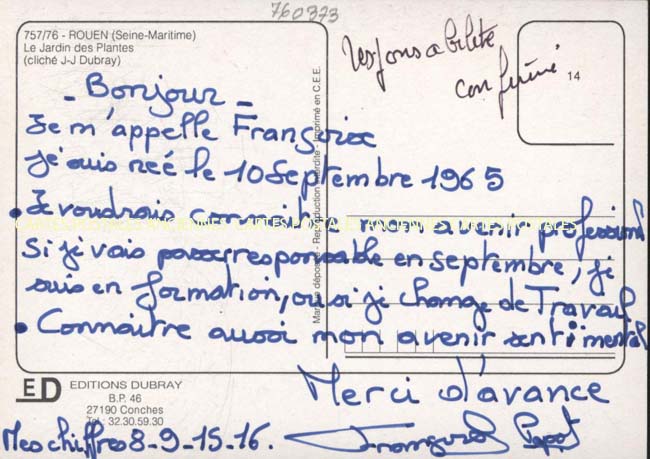 760373
757/76 - ROUEN (Seine-Maritime)
Le Jardin des Plantes
(cliché J-J Dubray)
responsabilité
confirmé
14
- Bonjour -
Je m'appelle Françoise
je suis née le 10 Septembre 1965
• Je voudrais connaitre mon avenir professionnel
Si je vais passer responsable en septembre, si je
suis en formation, ou si je change de Travail
• Connaitre aussi mon avenir sentimental
Merci d'avance
Mes chiffres 8-9-15-16.
Françoise
ED
EDITIONS DUBRAY
B.P. 46
27190 Conches
Tél.: 32.30.59.30
Marque déposée - Reproduction interdite - Imprimé en C.E.E.